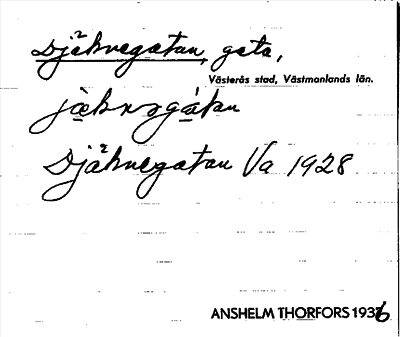 Djäknegatan, gata,
Västerås stad, Västmanlands län.
jäknəgàtan
Djäknegatan Va 1928
ANSHELM THORFORS 1936